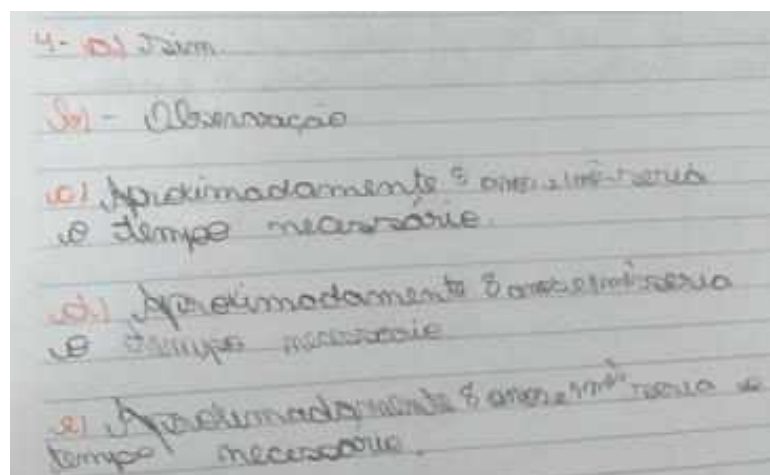 4- a) Sim.
b) - Observação
c) Aproximadamente 8 anos e 1 mês seria
o tempo necessário.
d) Aproximadamente 8 anos e 1 mês seria
o tempo necessario
e) Aproximadamente 8 anos e 1 mês seria o
tempo necessário.